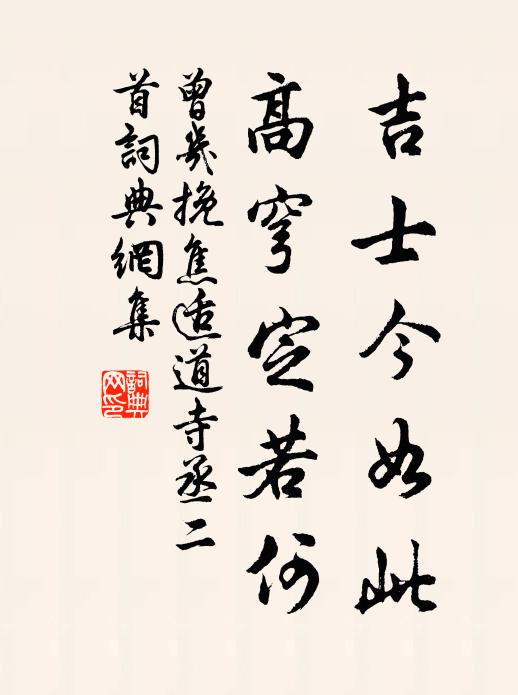 吉士今如此
高穹定若何
曾几挽焦适道寺丞二
首詞典網集
詞典網印